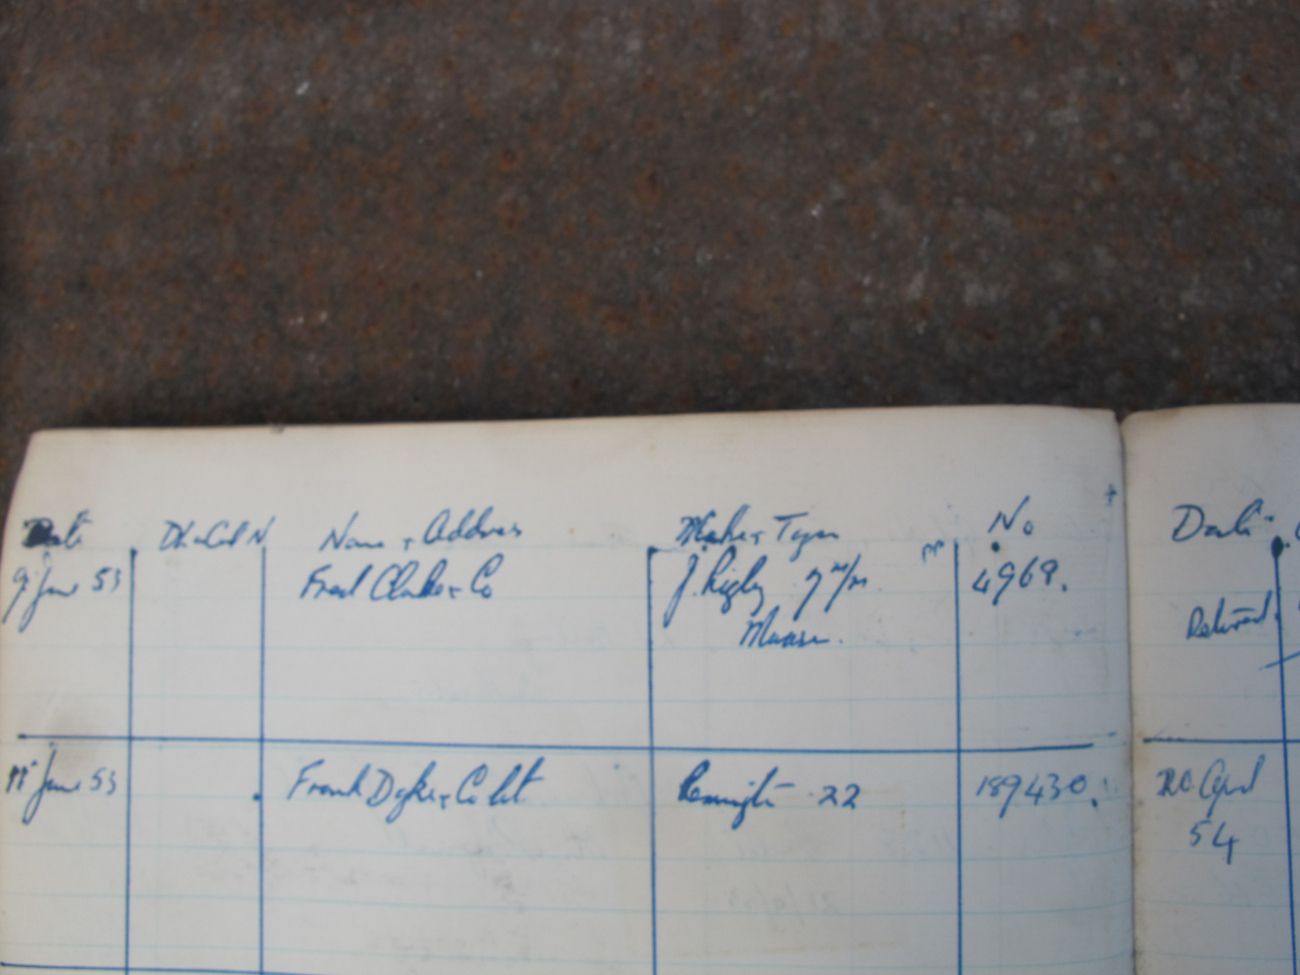 Date Name + Address Make + Type No Date
9 June 53 Fred Clarke + Co J. Rigby 7 m/m 4969.
Mauser. Returned.
June 53 Frank Dyke + Co Lt Remington .22 189430. 20. April
54